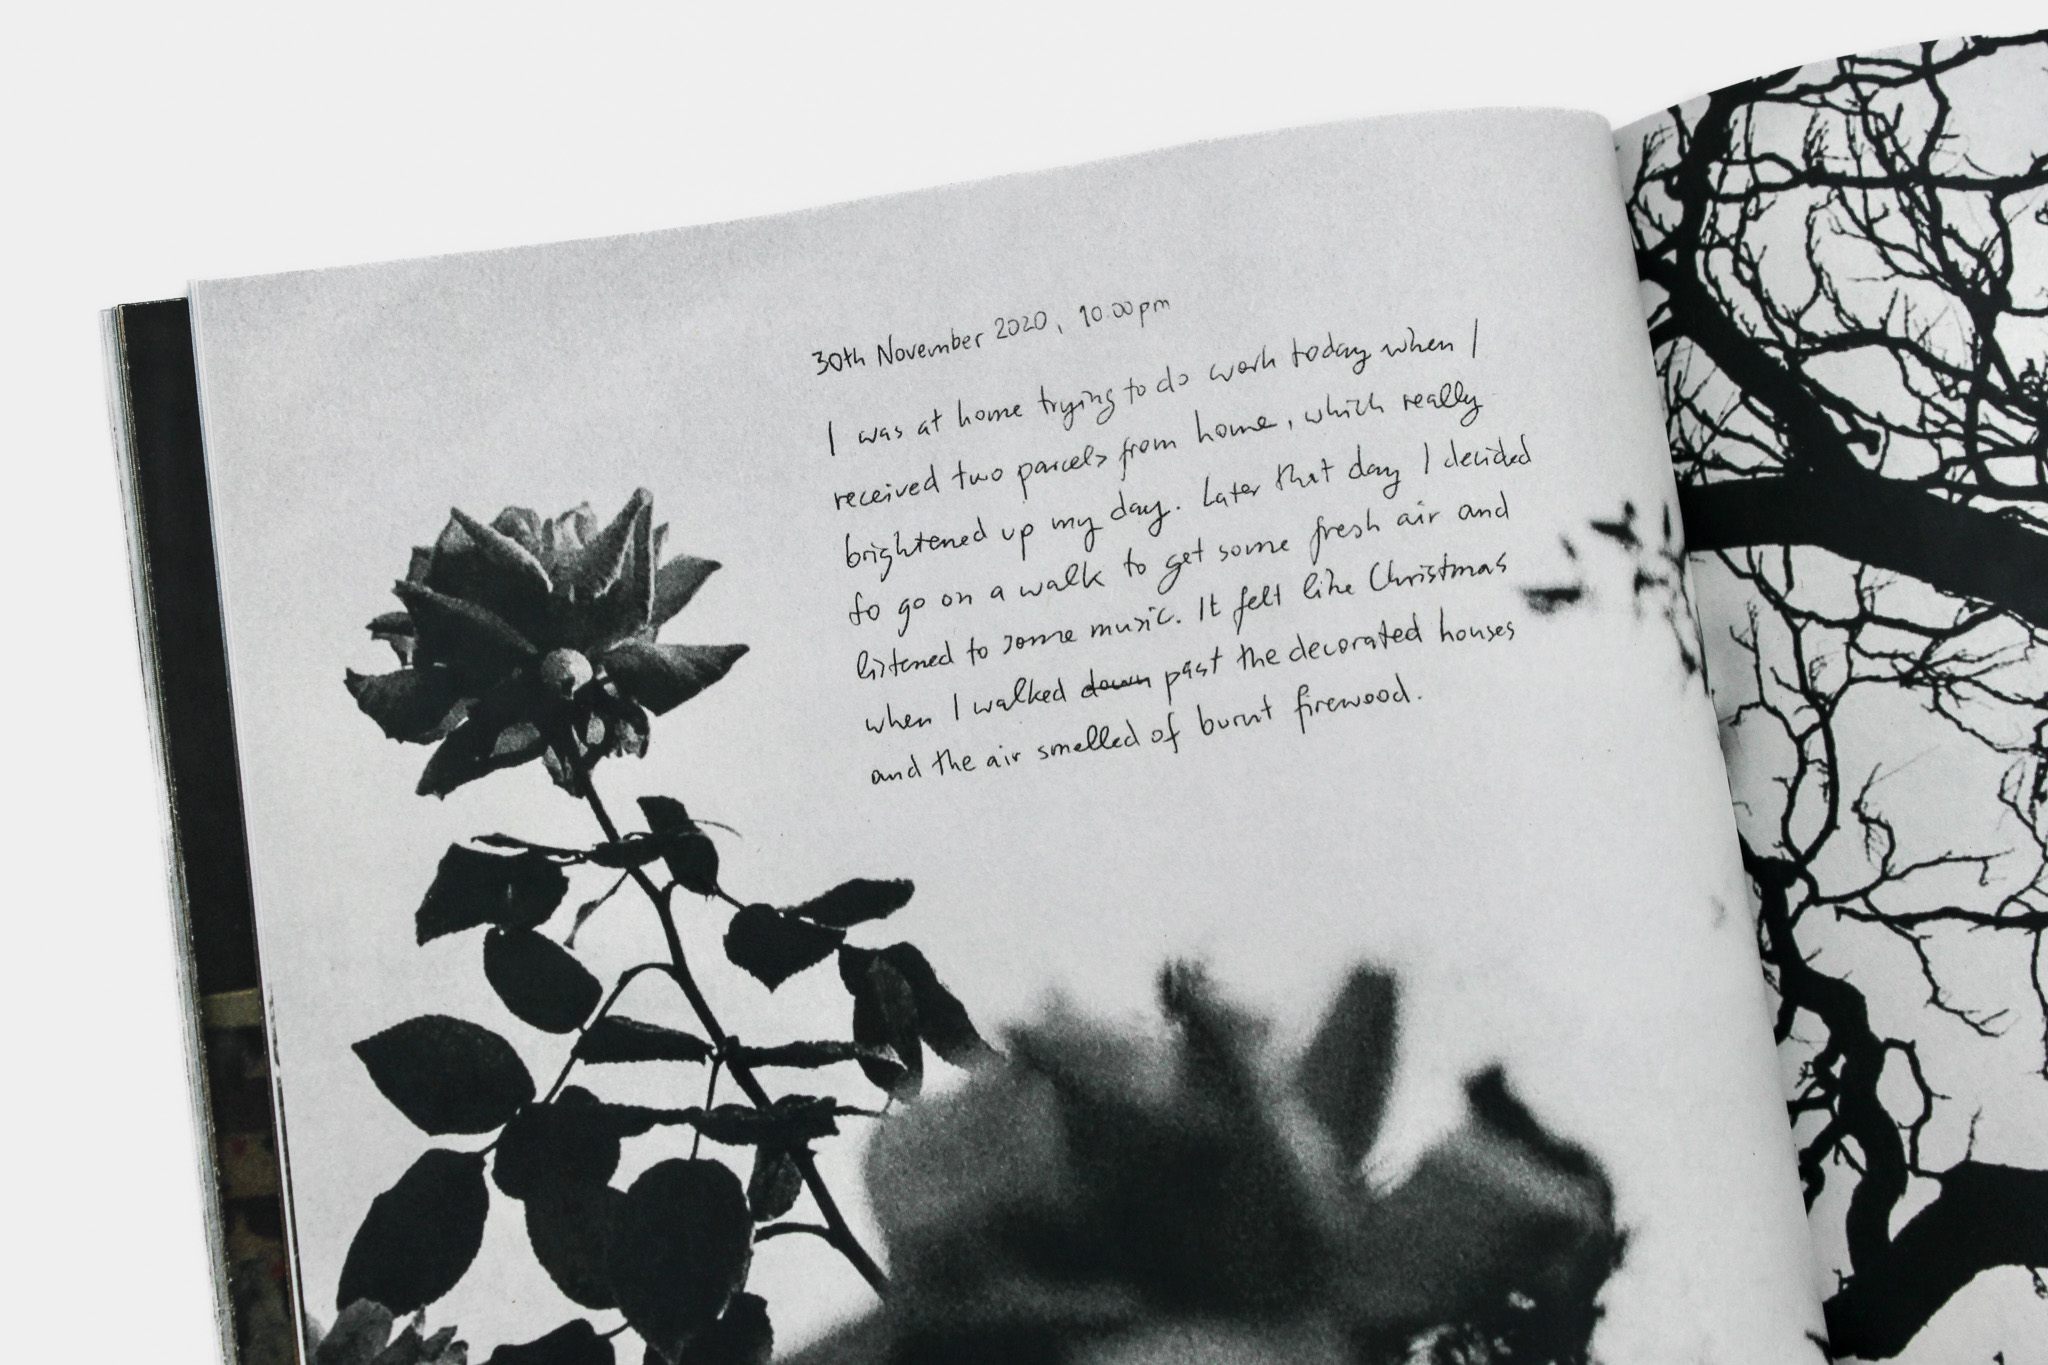 30th November 2020, 10.00pm
I was at home trying to do work today when I
received two parcels from home, which really
brightened up my day. Later that day I decided
to go on a walk to get some fresh air and
listened to some music. It felt like Christmas
when I walked down past the decorated houses
and the air smelled of burnt firewood.